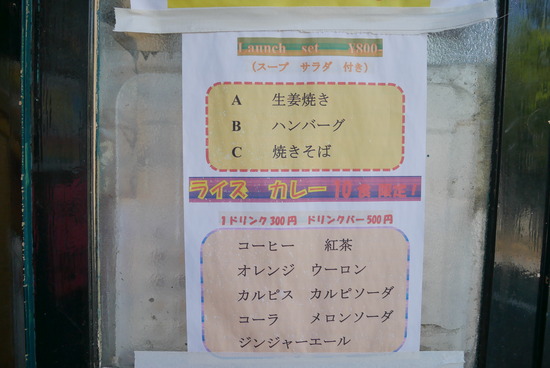 Launch set ¥800-
(スープ サラダ 付き)
A 生姜焼き
B ハンバーグ
C 焼きそば
ライズ カレー 10食 限定！
1ドリンク300円 ドリンクバー500円
コーヒー 紅茶
オレンジ ウーロン
カルピス カルピソーダ
コーラ メロンソーダ
ジンジャーエール